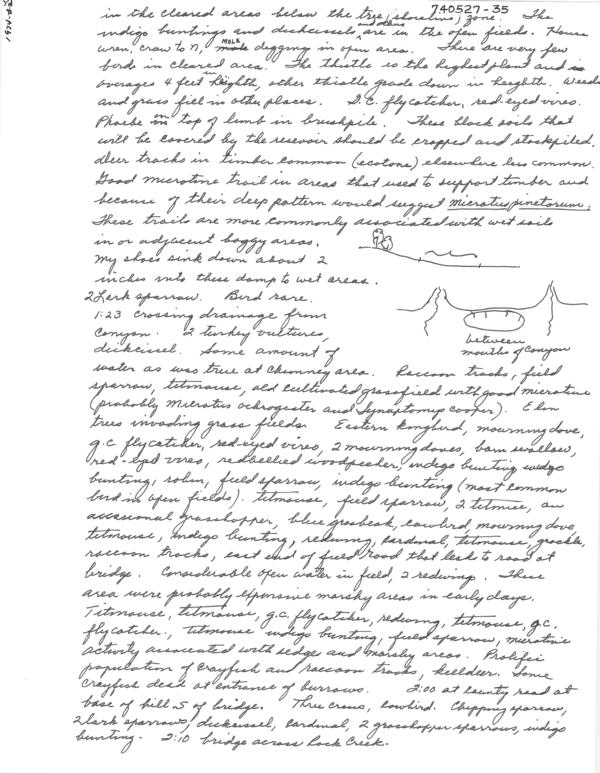 740527-35
in the cleared areas below the tree, shoreline, zone. The
indigo buntings and dickcissels and doves are in the open fields. House
wren, crow to N, mole digging in open area. There are very few
birds in cleared area. The thistle is the highest plant and is
averages 4 feet in heighth, other thistle grade down in heighth. Weeds
and grass fill in other places. G.C. flycatcher, red-eyed vireo.
Phoebe on top of limb in brushpile. These black soils that
will be covered by the resevoir should be cropped and stockpiled.
deer tracks in timber common (ecotone) elsewhere less common.
Good microtine trail in areas that used to support timber and
because of their deep pattern would suggest Microtus pinetorum.
These trails are more commonly associated with wet soils
in or adjacent boggy areas.
My shoes sink down about 2
inches into these damp to wet areas.
2 Lark sparrow. Bird rare.
1:23 crossing drainage from
canyon. 2 turkey vultures,
dickcissel. Some amount of
between
mouths of canyon
water as was true at chimney area. Raccoon tracks, field
sparrow, titmouse, old cultivated grassfield with good microtine
(probably Microtus ochrogaster and Synaptomys cooperi). Elm
trees invading grass fields. Eastern kingbird, mourning dove,
g.c. flycatcher, red-eyed vireo, 2 mourning doves, barn swallow,
red-eyed vireo, redbellied woodpecker, indigo bunting, indigo
bunting, robin, field sparrow, indigo bunting (most common
bird in open fields). titmouse, field sparrow, 2 titmice, an
occasional grasshopper, blue grosbeak, cowbird, mourning dove,
titmouse, indigo bunting, redwing, cardinal, titmouse, grackle,
raccoon tracks, east end of field road that leads to road at
bridge. Considerable open water in field, 2 redwings. These
area were probably expansive marshy areas in early days.
Titmouse, titmouse, g.c. flycatcher, redwing, titmouse, g.c.
flycatcher, titmouse indigo bunting, field sparrow, microtine
activity associated with sedge and marshy areas. Prolific
population of crayfish and raccoon tracks, killdeer. Some
crayfish dead at entrance of burrows. 2:00 at county road at
base of hill S of bridge. Three crows, cowbird. Chipping sparrow,
2 lark sparrows, dickcissel, cardinal, 2 grasshopper sparrows, indigo
bunting. 2:10 bridge across Rock Creek.